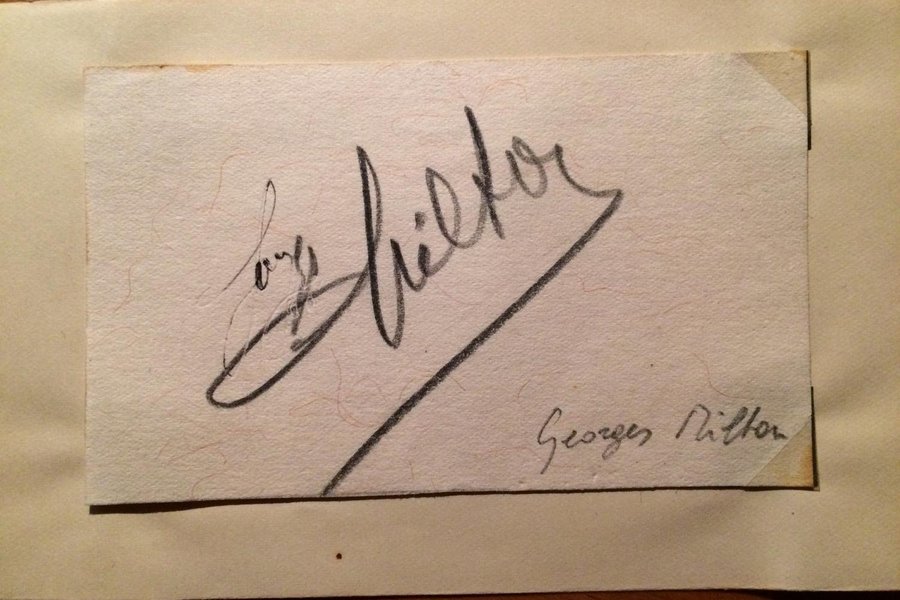 Milton
Georges Milton